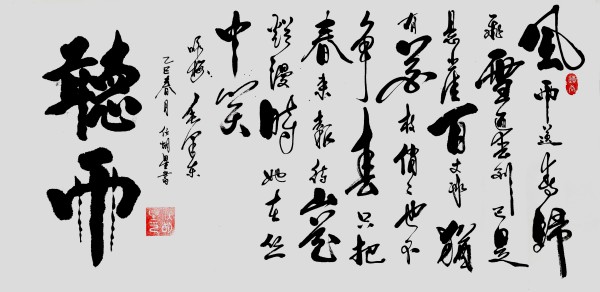 風雨送春歸
飛雪迎春到已是
悬崖百丈冰猶
有花枝俏々也不
争春只把
春来報待山花
爛漫時她在丛
中笑
咏梅 毛澤东
聽雨
乙巳春月 書